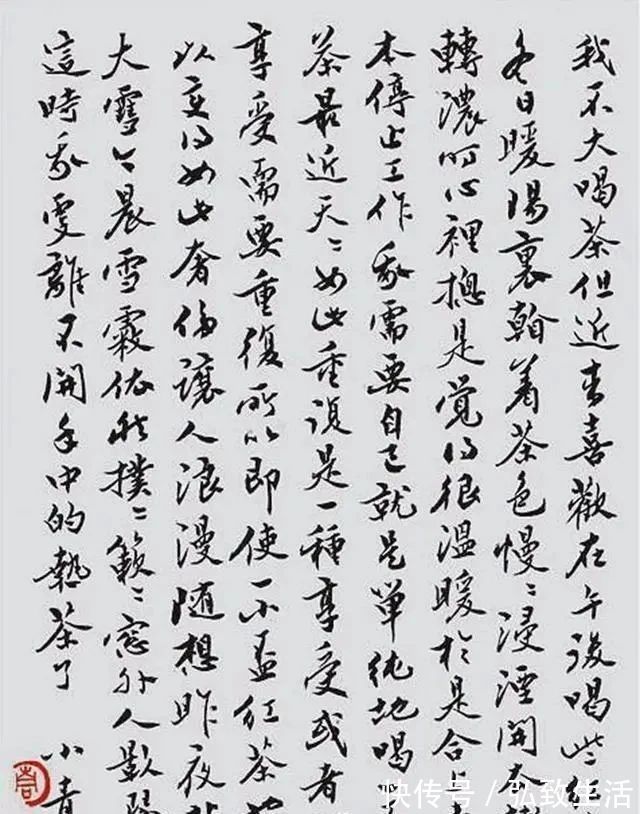 我不大喝茶但近来喜歡在午後喝些
冬日暖陽裏翰着茶色慢=浸湮開
轉濃时心裡總是覺得很溫暖於是合上
本停止工作我需要自己就是單純地喝
茶最近天=如此重復是一種享受或者
享受需要重復所以即使一小盃红茶
以变得如此奢侈讓人浪漫隨想昨夜
大雪今晨雪霰依然撲=簌=窓外人影
這時我更離不開手中的熱茶了 小青
快传号/弘致生活